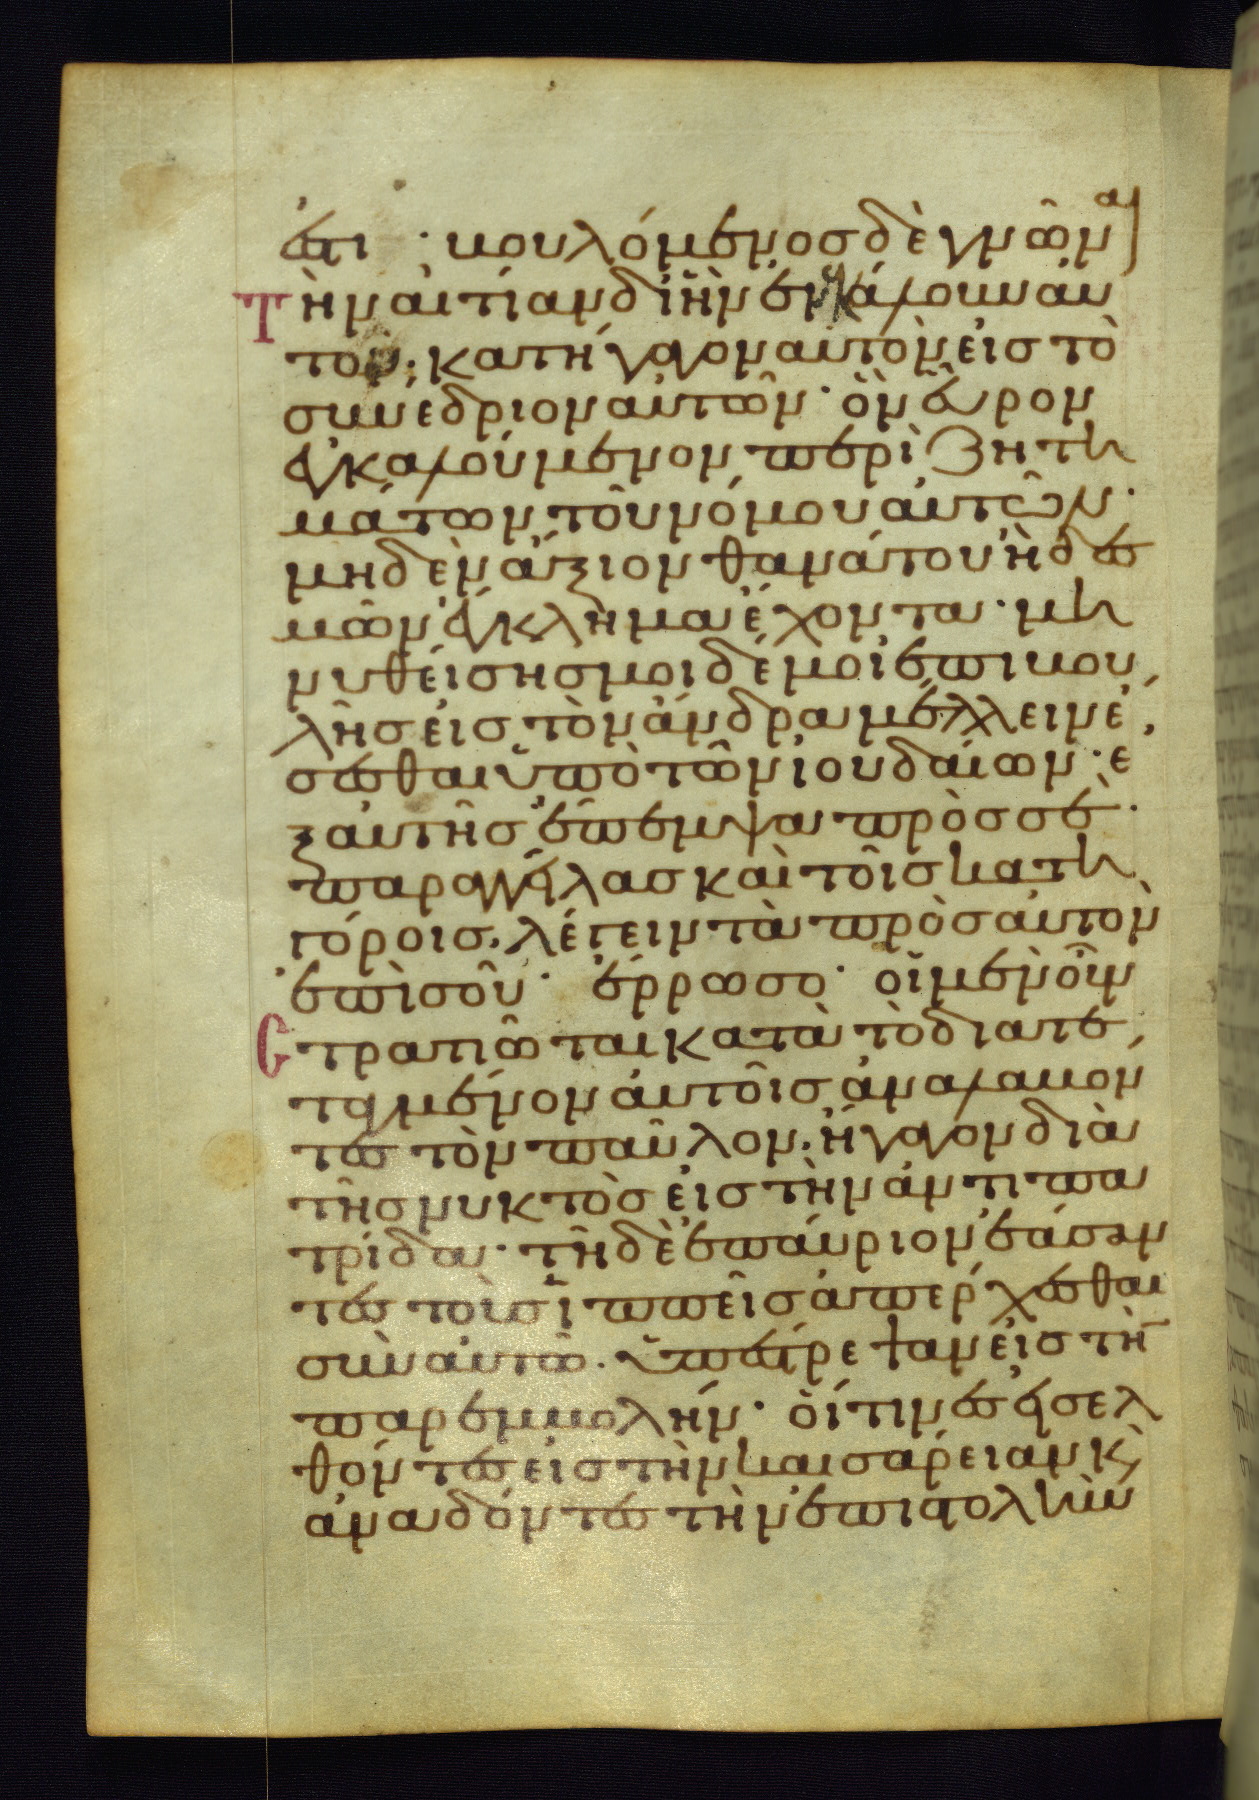 ἐστι· βουλόμενος δὲ γνῶναι
τὴν αἰτίαν δι ἣν ἐνεκάλουν αὐ
τοῦ· κατήγαγον αὐτὸν εἰς τὸ
συνέδριον αὐτῶν· ὃν εὗρον
ἐγκαλούμενον περὶ ζητη
μάτων τοῦ νόμου αὐτῶν·
μηδὲν ἄξιον θανάτου ἢ δε
σμῶν ἔγκλημα ἔχοντα· μη
νυθείσης μοι δέ μοι ἐπιβου
λῆς εἰς τὸν ἄνδρα μέλλειν ἔ
σεσθαι ὑπὸ τῶν ἰουδαίων· ἐ
ξαυτῆς ἔπεμψα πρὸς σὲ·
παραγγείλας καὶ τοῖς κατη
γόροις, λέγειν τὰ πρὸς αὐτὸν
ἐπὶ σοῦ· ἔρρωσο· οἱ μὲν οὖν
στρατιῶται κατὰ τὸ διατε
ταγμένον αὐτοῖς ἀναλαβόν
τες τὸν παῦλον, ἤγαγον διὰ
τῆς νυκτὸς εἰς τὴν ἀντιπα
τρίδα· τῇ δὲ ἐπαύριον ἐάσαν
τες τοὺς ἱππεῖς ἀπέρχεσθαι
σὺν αὐτῶ· ὑπέστρεψαν εἰς τὴν
παρεμβολήν· οἵτινες εἰσελ
θόντες εἰς τὴν καισάρειαν κὶ
ἀναδόντες τὴν ἐπιστολὴν